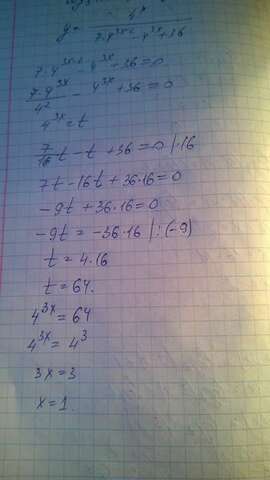 y = 4^x / (7·4^(3x-2) - 4^(3x) + 36)
7·4^(3x-2) - 4^(3x) + 36 = 0
7·4^(3x) / 4² - 4^(3x) + 36 = 0
4^(3x) = t
7/16 t - t + 36 = 0 |·16
7t - 16t + 36·16 = 0
-9t + 36·16 = 0
-9t = -36·16 |:(-9)
t = 4·16
t = 64.
4^(3x) = 64
4^(3x) = 4³
3x = 3
x = 1